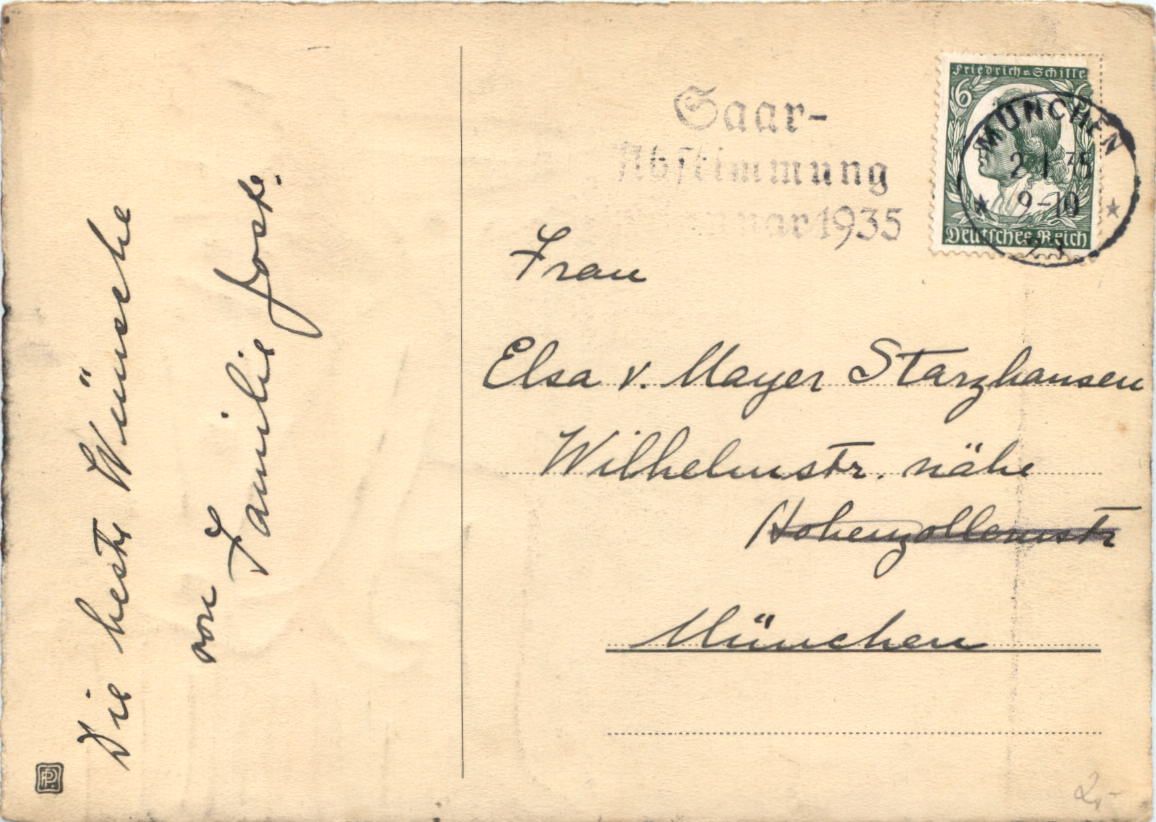 Die beste Wünsche
von Familie
Saar-
Abstimmung
1935
Friedrich-Schille
6
Deutsches Reich
MÜNCHEN
2.1.35
9-10
Frau
Elsa v. Mayer Starzhausen
Wilhelmstr. nähe
Hohenzollernstr
München
2,-